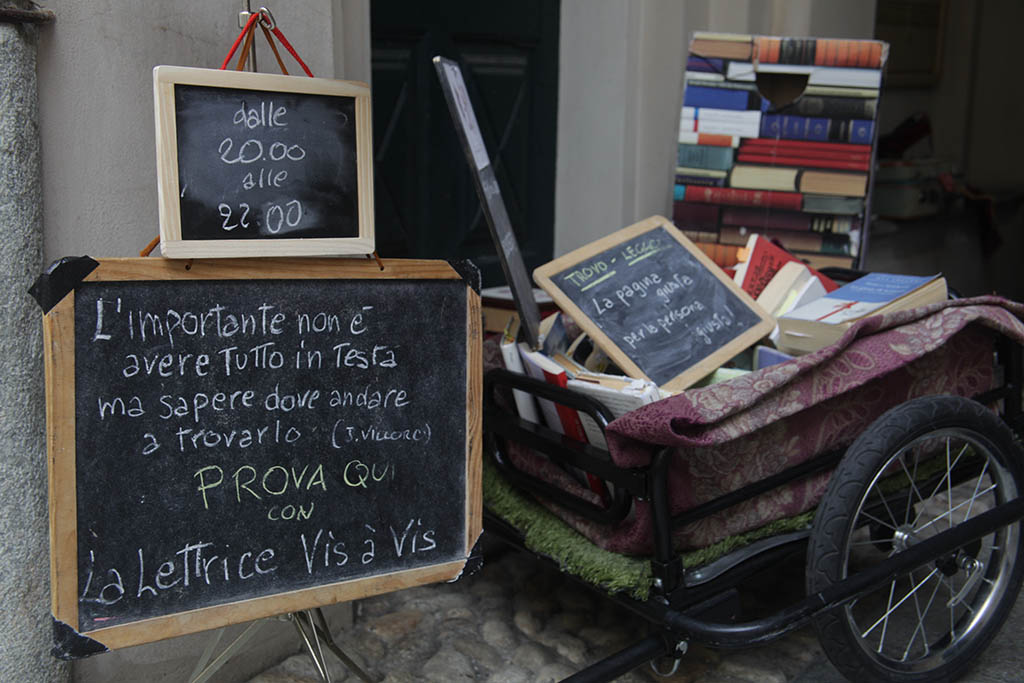 dalle
20.00
alle
22.00
L'importante non è
avere tutto in testa
ma sapere dove andare
a trovarlo (J. Villoro)
PROVA QUI
CON
La Lettrice Vis à Vis
TROVO - LEGGO
La pagina giusta
per la persona
giusta!